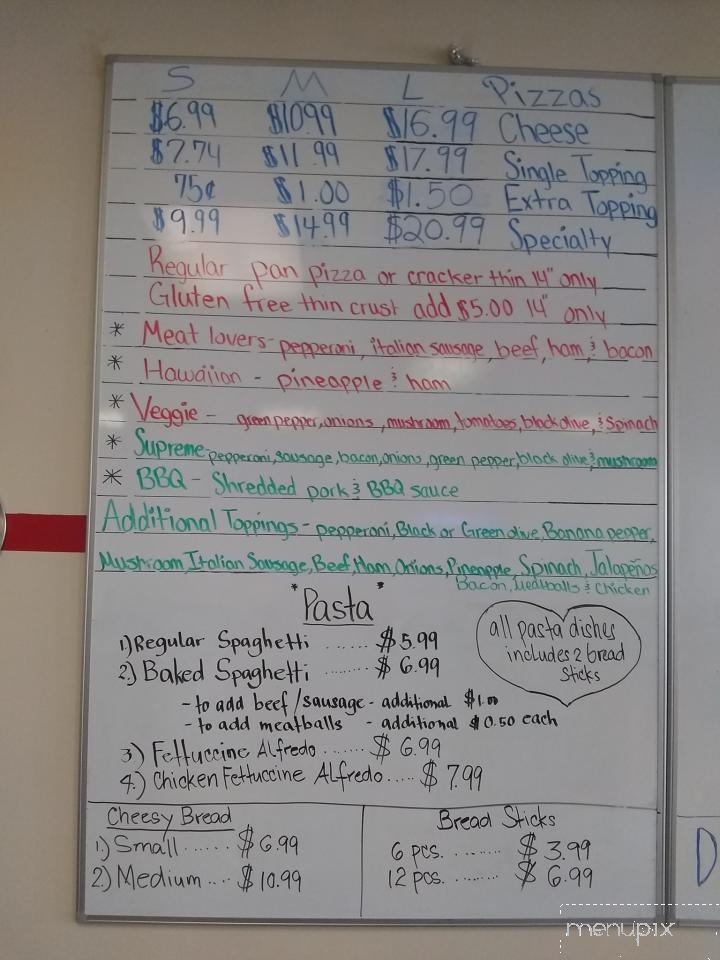 S M L Pizzas
$6.99 $10.99 $16.99 Cheese
$7.74 $11.99 $17.99 Single Topping
75¢ $1.00 $1.50 Extra Topping
$9.99 $14.99 $20.99 Specialty
Regular pan pizza or cracker thin 14" only
Gluten free thin crust add $5.00 14" only
* Meat lovers - pepperoni, italian sausage, beef, ham, & bacon
* Hawaiian - pineapple & ham
* Veggie - green pepper, onions, mushroom, tomatoes, black olive, & Spinach
* Supreme - pepperoni, sausage, bacon, onions, green pepper, black olive & mushroom
* BBQ - Shredded pork & BBQ sauce
Additional Toppings - pepperoni, Black or Green olive, Banana pepper,
Mushroom, Italian Sausage, Beef, Ham, Onions, Pineapple, Spinach, Jalapeños
Bacon, Meatballs & Chicken
"Pasta"
1) Regular Spaghetti ...... $5.99
2.) Baked Spaghetti ........ $6.99
- to add beef/sausage - additional $1.00
- to add meatballs - additional $0.50 each
3) Fettuccine Alfredo ....... $6.99
4.) Chicken Fettuccine Alfredo ..... $7.99
all pasta dishes
includes 2 bread
sticks
Cheesy Bread
1) Small ...... $6.99
2.) Medium .... $10.99
Bread Sticks
6 pcs. ......... $3.99
12 pcs. ........ $6.99
D
menupix